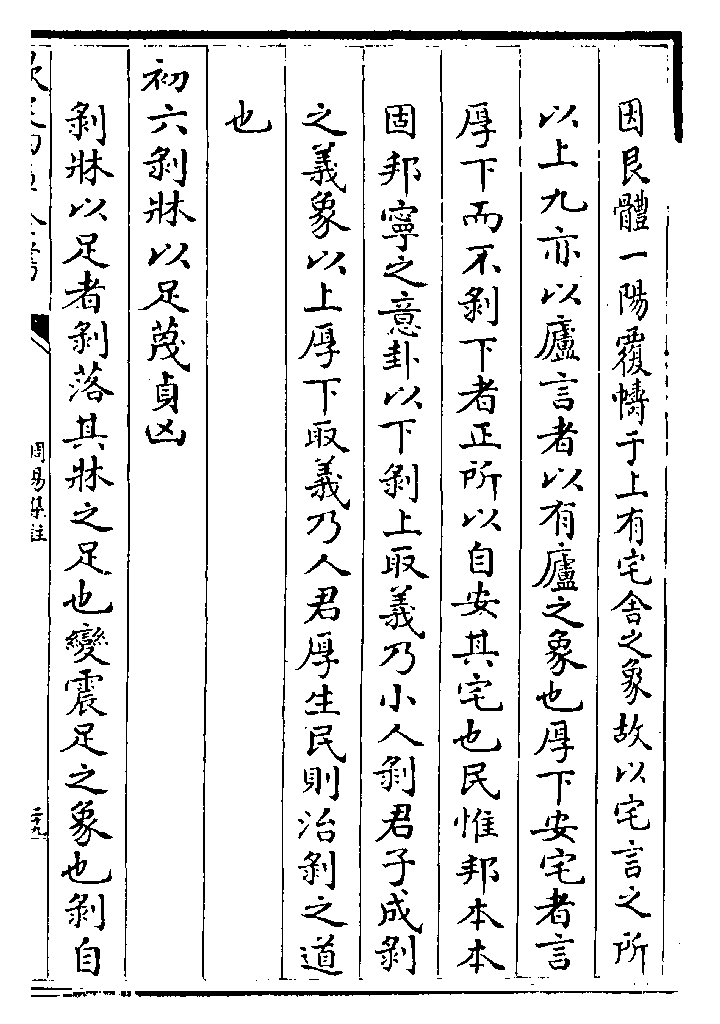 因艮體一陽覆幬于上有宅舍之象故以宅言之所
以上九亦以廬言者以有廬之象也厚下安宅者言
厚下而不剝下者正所以自安其宅也民惟邦本本
固邦寧之意卦以下剝上取義乃小人剝君子成剝
之義象以上厚下取義乃人君厚生民則治剝之道
也
初六剝牀以足蔑貞凶
剝牀以足者剝落其牀之足也變震足之象也剝自
周易集註